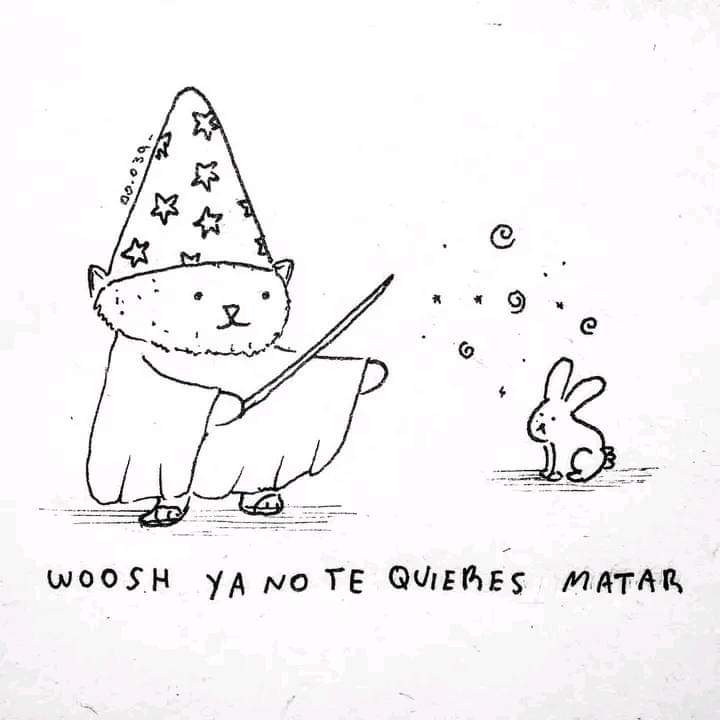 00.039.-
WOOSH YA NO TE QUIERES MATAR